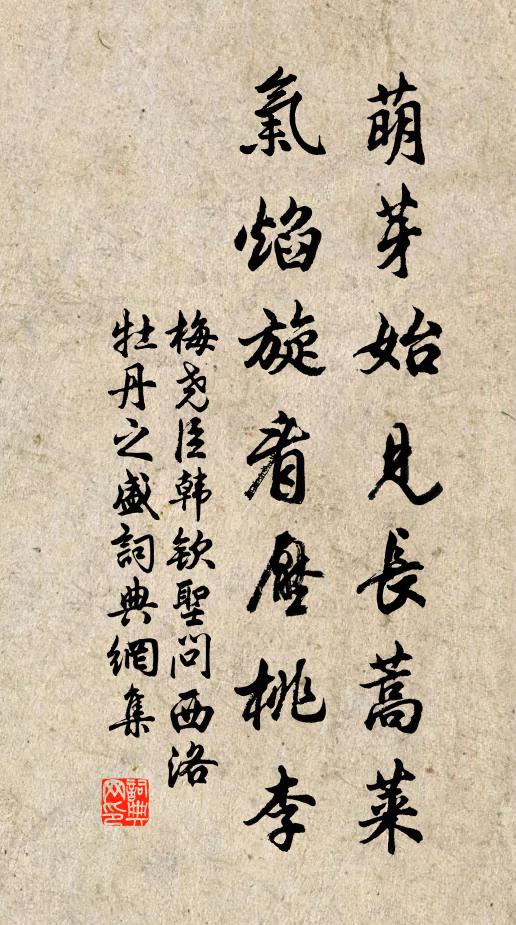 萌芽始見長蒿萊
氣焰旋看壓桃李
梅尧臣韩钦聖问西洛
牡丹之盛詞典網集
詞典网印